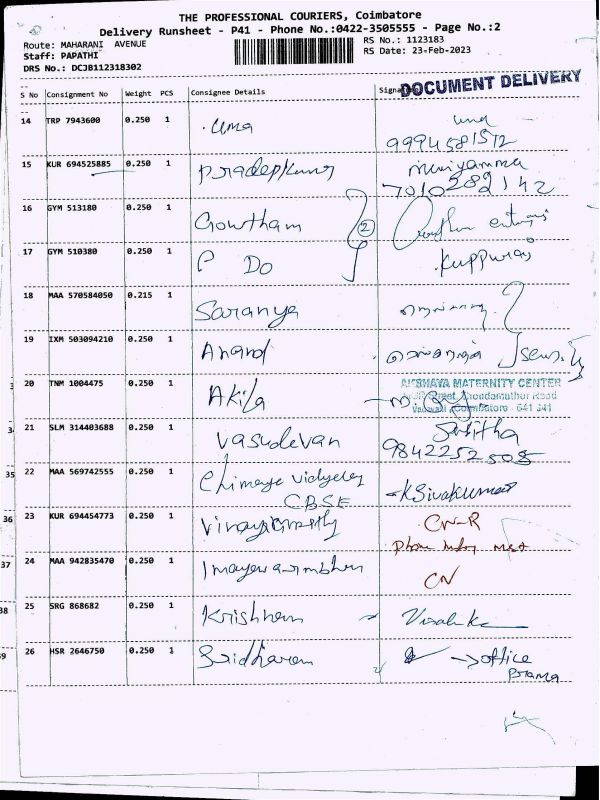 THE PROFESSIONAL COURIERS, Coimbatore
Delivery Runsheet - P41 - Phone No.:0422-3505555 - Page No.:2
Route: MAHARANI AVENUE
RS No.: 1123183
Staff: PAPATHI
RS Date: 23-Feb-2023
DRS No.: DCJB112318302
DOCUMENT DELIVERY
S No Consignment No Weight PCS Consignee Details
14 TRP 7943600 0.250 1 Uma
9994581512
15 KUR 694525885 0.250 1 Pradeepkumar Muniyamma
7010282142
16 GYM 513180 0.250 1 Gowtham 2
17 GYM 510380 0.250 1 P Do
18 MAA 570584050 0.215 1 Saranya
19 IXM 503094210 0.250 1 Anand
20 TNM 1004475 0.250 1 Akila
AKSHAYA MATERNITY CENTER
Thondamuthur Road
Coimbatore - 641 041
21 SLM 314403688 0.250 1 Vasudevan
9842252508
22 MAA 569742555 0.250 1 K Sivakumar
CBSE
23 KUR 694454773 0.250 1 CN-R
24 MAA 942835470 0.250 1 CN
25 SRG 868682 0.250 1 Krishnan
26 HSR 2646750 0.250 1 Sridharan office
35
36
37
38
39